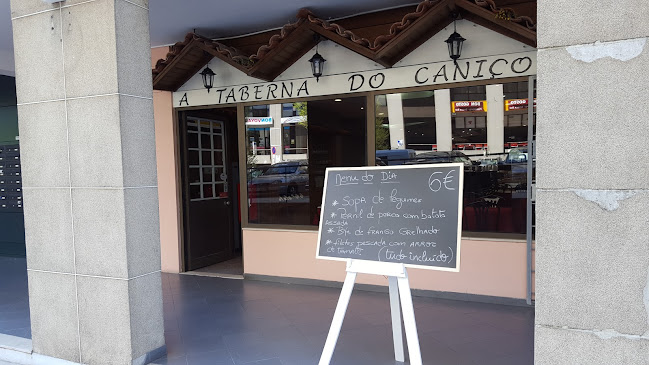 A TABERNA DO CANIÇO
Menu do DIA 6€
* Sopa de legumes
* Pernil de porco com batata
assada
* Bife de frango Grelhado
* filetes pescada com arroz
de tomate (tudo incluido)